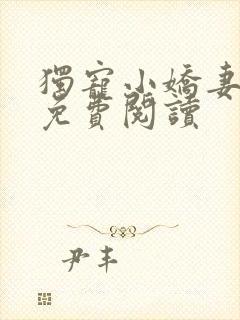 獨寵小嬌妻
免費閱讀
尹丰